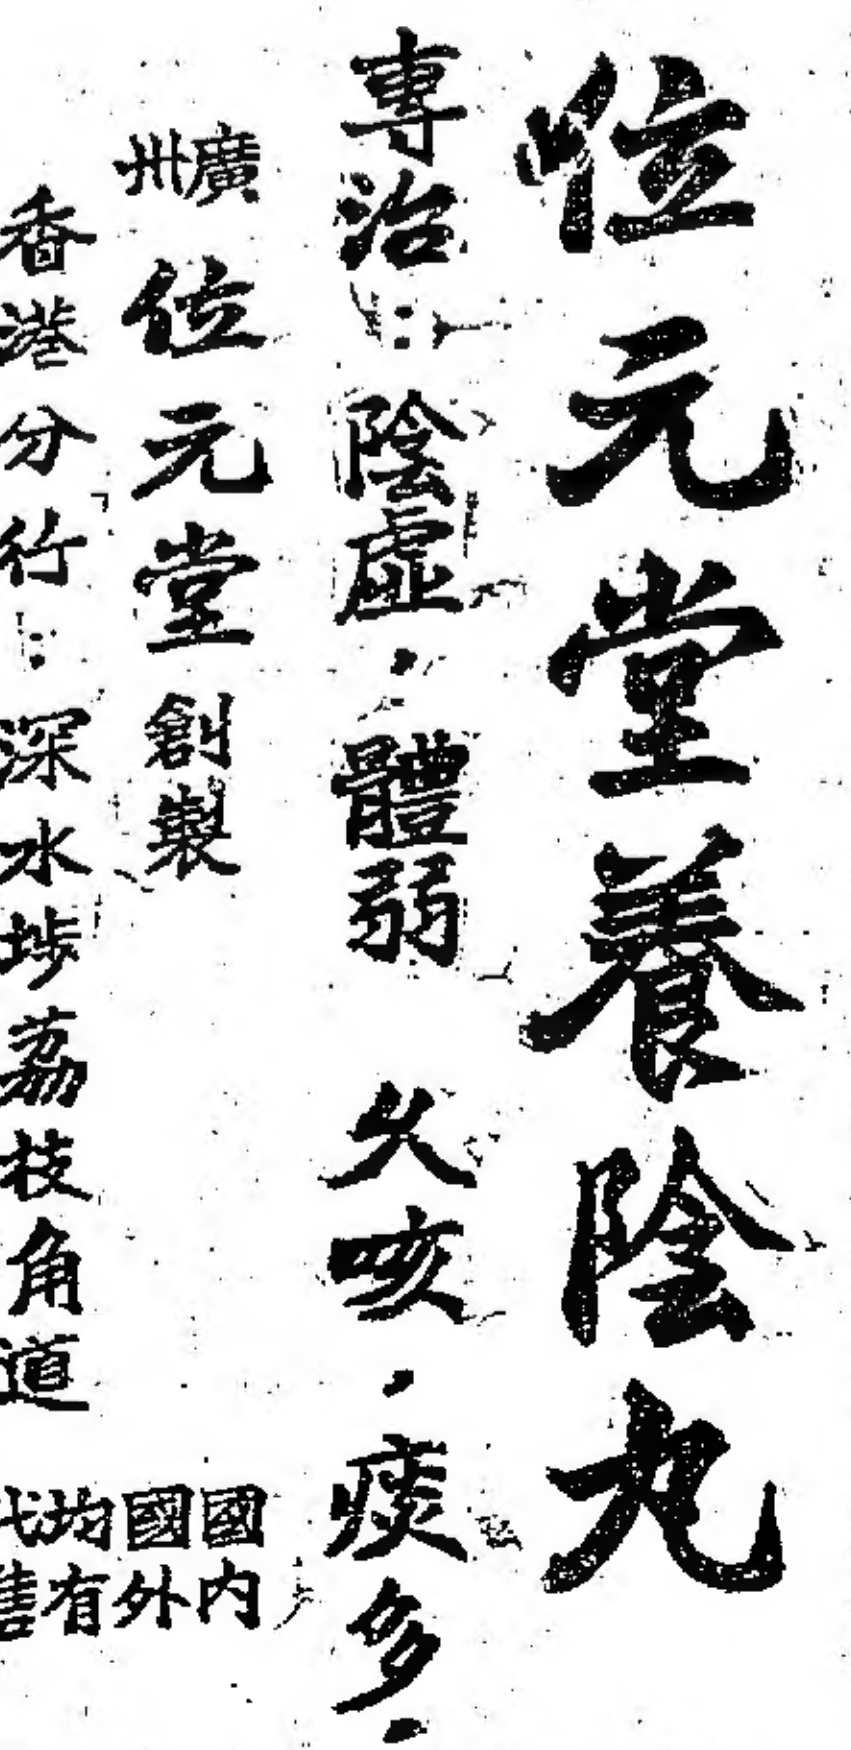 位元堂養陰丸
專治：陰虛．體弱　久咳．痰多．
廣州位元堂創製
香港分行：深水埗荔枝角道
國内
國外
均有
代售